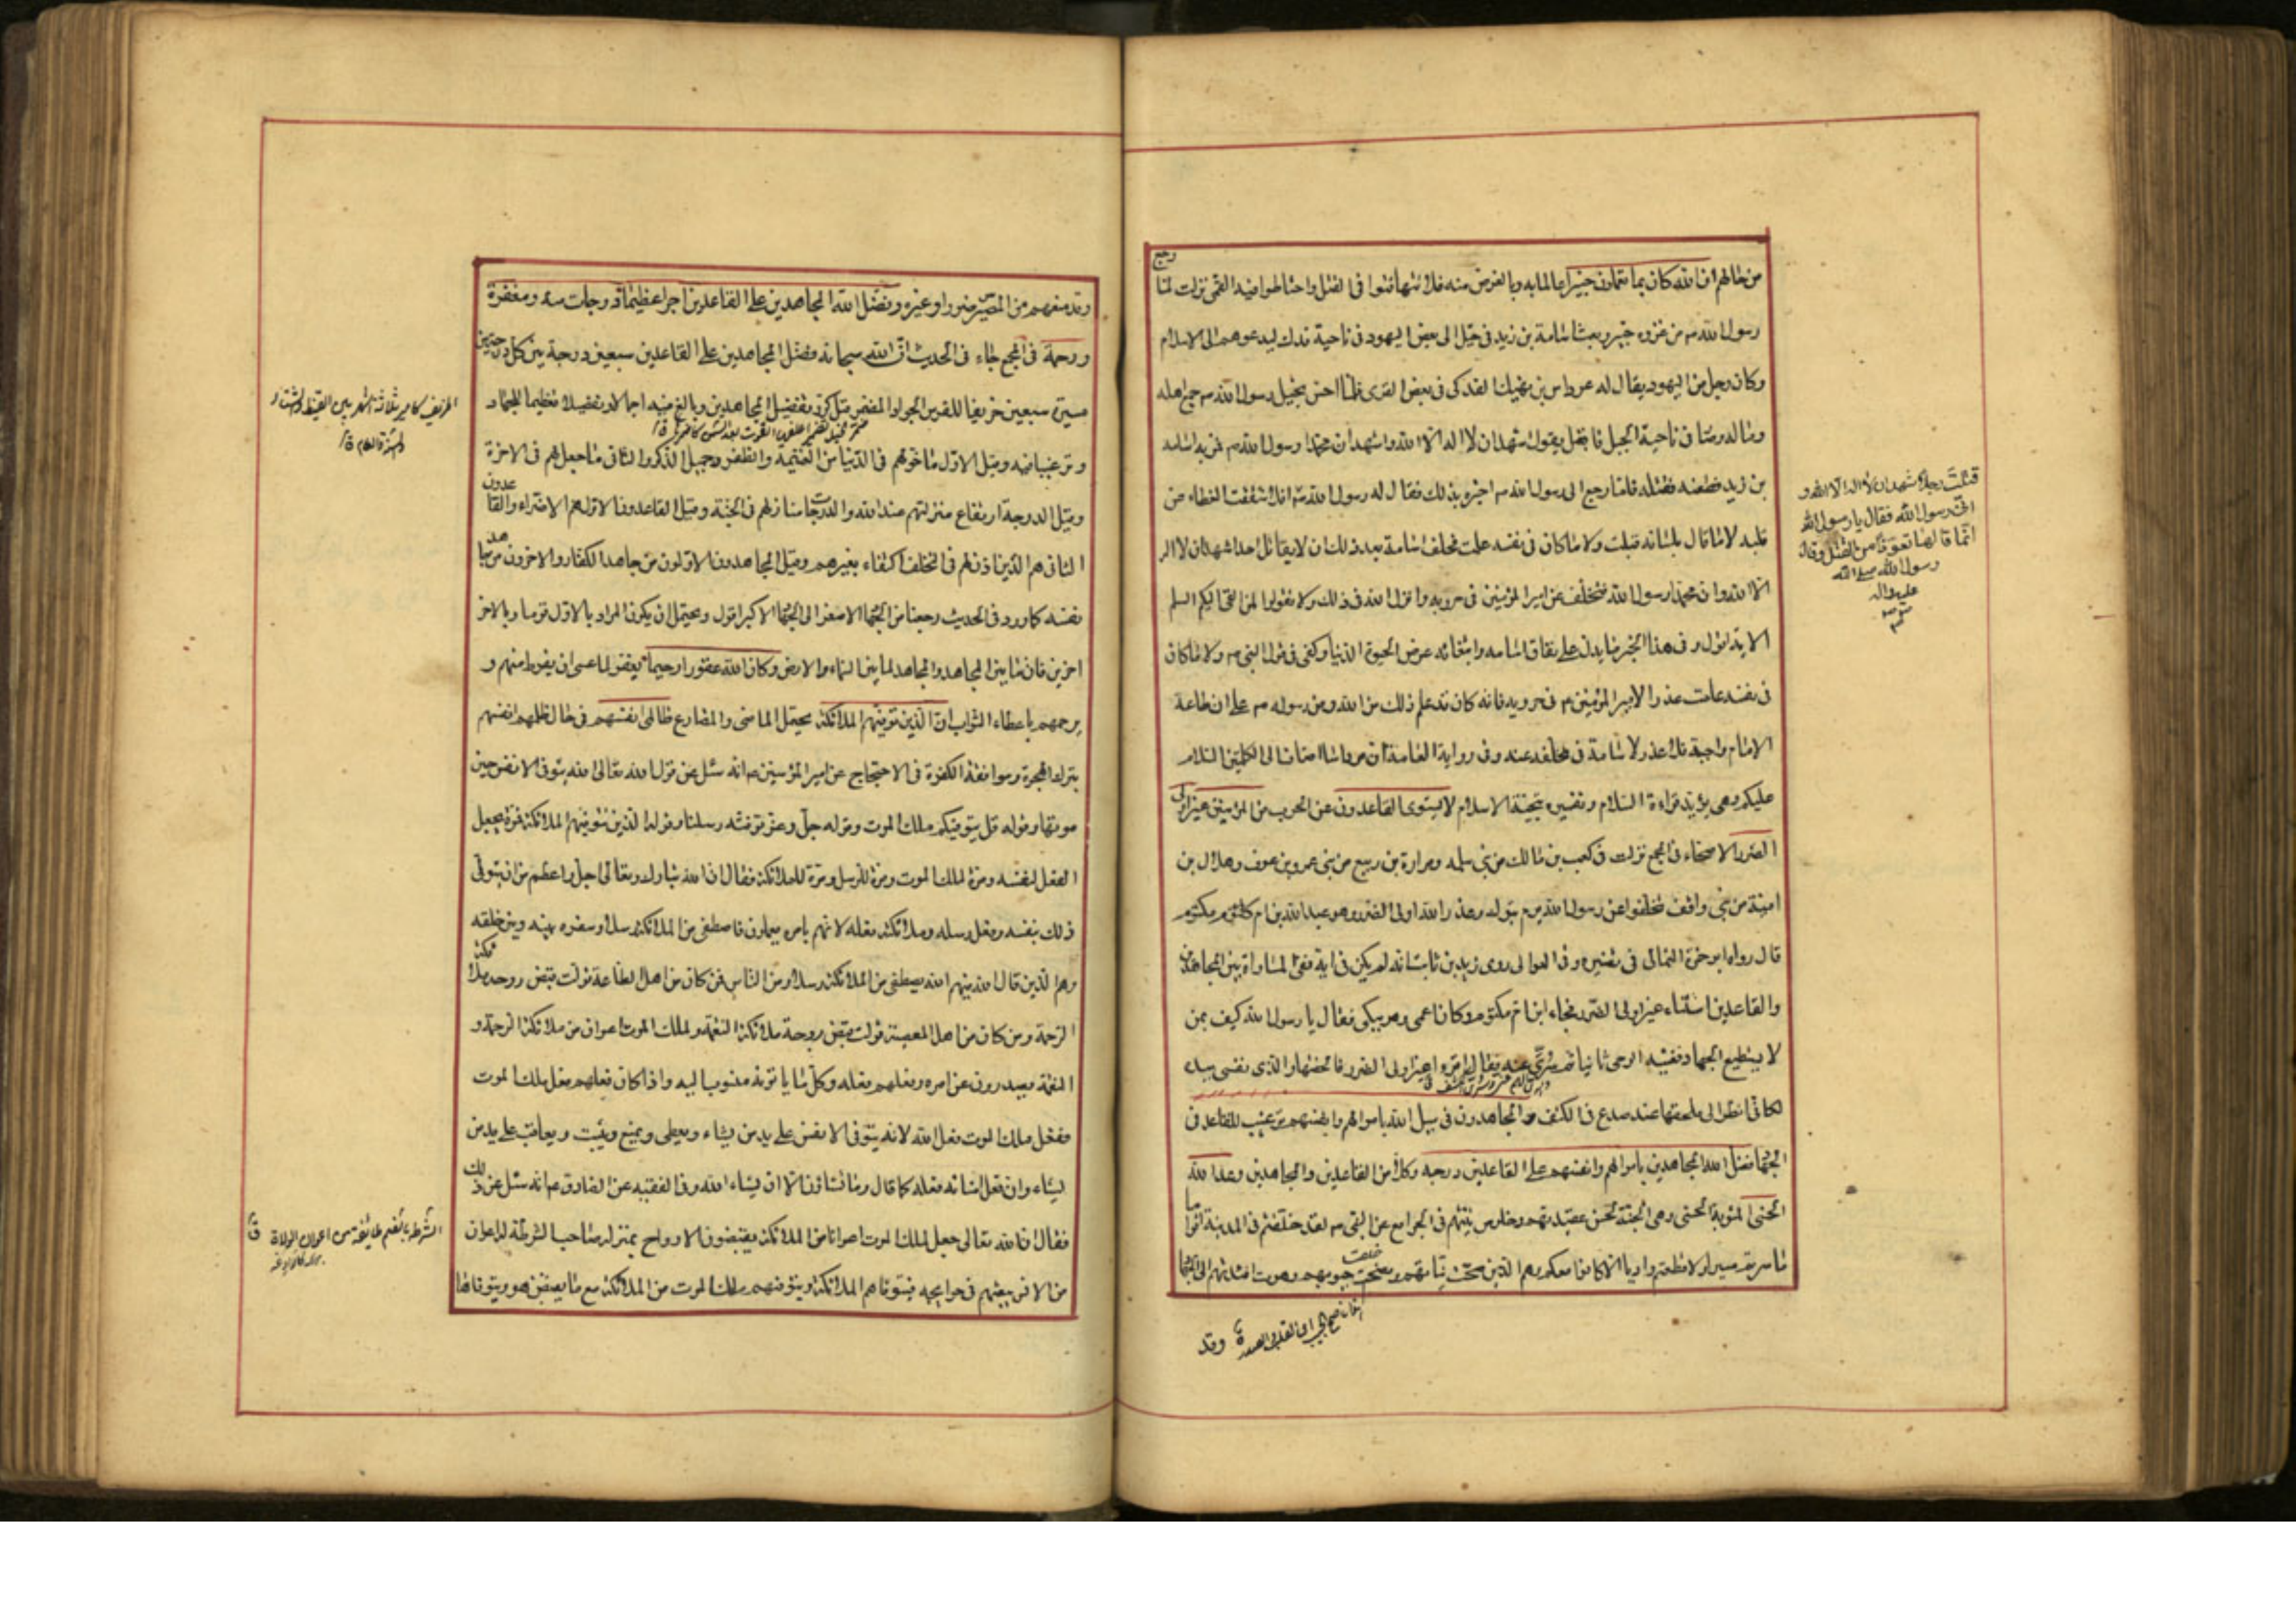 من حالهم ان الله كان بما تعملون خبيرا عالما به وبالغرض منه فلا تتهافتوا في القتل واحتاطوا فيه القمي نزلت لما رجع
رسول الله ص من غزوة خيبر وبعث اسامة بن زيد في خيل الى بعض اليهود في ناحية فدك ليدعوهم الى الاسلام
وكان رجل من اليهود يقال له مرداس بن نهيك الفدكي في بعض القرى فلما احس بخيل رسول الله ص جمع اهله
وماله وصار في ناحية الجبل فاقبل يقول اشهد ان لا اله الا الله واشهد ان محمدا رسول الله ص فمر به اسامة
بن زيد فطعنه فقتله فلما رجع الى رسول الله ص اخبره بذلك فقال له رسول الله ص افلا شققت الغطاء عن
قلبه لا ما قال بلسانه قبلت ولا ما كان في نفسه علمت فحلف اسامة بعد ذلك ان لا يقاتل احدا شهد ان لا اله
الا الله وان محمدا رسول الله فتخلف عن امير المؤمنين في حروبه وانزل الله في ذلك ولا تقولوا لمن القى اليكم السلم
الاية اقول وفي هذا الخبر ما يدل على نفاق اسامه وابتغائه عرض الحيوة الدنيا وكفى في قول النبي ص ولا ما كان
في نفسه علمت عذرا لامير المؤمنين ع في حروبه فانه كان قد علم ذلك من الله ومن رسوله ص على ان طاعة
الامام واجبة فلا عذر لاسامة في تخلفه عنه وفي رواية العامة ان مرداسا اضاف الى الكلمتين السلام
عليكم وهي يؤيد قراءة السلام وتفسيره بتحية الاسلام لا يستوى القاعدون عن الحرب من المؤمنين غير اولى
الضرر الاصحاء في المجمع نزلت في كعب بن مالك من بني سلمه ومرارة بن ربيع من بني عمرو بن عوف وهلال بن
امية من بني واقف تخلفوا عن رسول الله يوم تبوك وعذر الله اولى الضرر وهو عبد الله بن ام مكتوم
قال رواه ابو حمزة الثمالي في تفسيره وفي العوالى روى زيد بن ثابت انه لم يكن في اية نفى المساواة بين المجاهدين
والقاعدين استثناء غير اولى الضرر فجاء ابن ام مكتوم وكان اعمى وهو يبكي فقال يا رسول الله كيف بمن
لا يستطيع الجهاد فغشيه الوحى ثانيا ثم سرى عنه فقال اقرء غير اولى الضرر فالحقتها والذى نفسى بيده
لكانى انظر الى ملحقها عند صدع في الكتف والمجاهدون في سبيل الله باموالهم وانفسهم ترغيب للقاعد في
الجهاد فضل الله المجاهدين باموالهم وانفسهم على القاعدين درجه وكلا من القاعدين والمجاهدين وعد الله
الحسنى المثوبة الحسنى وهى الجنة لحسن عقيدتهم وخلوص نيتهم في الجوامع عن النبى ص لقد خلفتم في المدينة اقواما
ما سرتم مسيرا ولا قطعتم واديا الا كانوا معكم وهم الذين صحت نياتهم ونصحت جيوبهم وهوت افئدتهم الى الجهاد
وقد
قتلت رجلا شهد ان لا اله الا الله و
انى رسول الله فقال يا رسول الله
انما قالها تعوذا من القتل وقال
رسول الله صلى الله
عليه واله
وقد منعهم من المصير ضرر او غيره وفضل الله المجاهدين على القاعدين اجرا عظيما درجات منه ومغفرة
ورحمة في المجمع جاء في الحديث ان الله سبحانه فضل المجاهدين على القاعدين سبعين درجة بين كل درجتين
مسيرة سبعين خريفا للفرس الجواد المضمر قيل كرر تفضيل المجاهدين وبالغ فيه اجمالا وتفصيلا تعظيما للجهاد
وترغيبا فيه وقيل الاول ما خولهم في الدنيا من الغنيمة والظفر وجميل الذكر والثانى ما جعل لهم في الاخرة
وقيل الدرجة ارتفاع منزلتهم عند الله والدرجات منازلهم في الجنة وقيل القاعدون الاول هم الاضراء والقاعدون
الثانى هم الذين اذن لهم في التخلف اكتفاء بغيرهم وقيل المجاهدون الاولون من جاهد الكفار والاخرون من جاهد
نفسه كما ورد في الحديث رجعنا من الجهاد الاصغر الى الجهاد الاكبر اقول ويحتمل ان يكون المراد بالاول قوما وبالاخر
اخرين فان ما بين المجاهد والمجاهد لما بين السماء والارض وكان الله غفورا رحيما يغفر لما عسى ان يفرط منهم و
يرحمهم باعطاء الثواب ان الذين توفيهم الملائكة يحتمل الماضى والمضارع ظالمى انفسهم في حال ظلمهم انفسهم
بترك الهجرة وموافقة الكفرة في الاحتجاج عن امير المؤمنين ع انه سئل عن قول الله تعالى الله يتوفى الانفس حين
موتها وقوله قل يتوفيكم ملك الموت وقوله جل وعز توفته رسلنا وقوله الذين تتوفيهم الملائكة فمرة يجعل
الفعل لنفسه ومرة لملك الموت ومرة للرسل ومرة للملائكة فقال ان الله تبارك وتعالى اجل واعظم من ان يتولى
ذلك بنفسه وفعل رسله وملائكته فعله لانهم بامره يعملون فاصطفى من الملائكة رسلا وسفرة بينه وبين خلقه
وهم الذين قال الله فيهم الله يصطفى من الملائكة رسلا ومن الناس فمن كان من اهل الطاعة تولت قبض روحه ملائكة
الرحمة ومن كان من اهل المعصية تولت قبض روحه ملائكة النقمة ولملك الموت اعوان من ملائكة الرحمة و
النقمة يصدرون عن امره وفعلهم فعله وكل ما ياتونه منسوب اليه واذا كان فعلهم فعل ملك الموت
ففعل ملك الموت فعل الله لانه يتوفى الانفس على يد من يشاء ويعطى ويمنع ويثيب ويعاقب على يد من
يشاء وان فعل امنائه فعله كما قال وما تشاؤن الا ان يشاء الله وفي الفقيه عن الصادق ع انه سئل عن ذلك
فقال ان الله تعالى جعل لملك الموت اعوانا من الملائكة يقبضون الارواح بمنزلة صاحب الشرطة له اعوان
من الانس يبعثهم في حوائجه فتتوفاهم الملائكة ويتوفيهم ملك الموت من الملائكة مع ما يقبض هو ويتوفاها
الخريف كامير ثلاثة اشهر بين القيظ والشتاء
الشرطة بالضم طائفة من اعوان الولاة ق